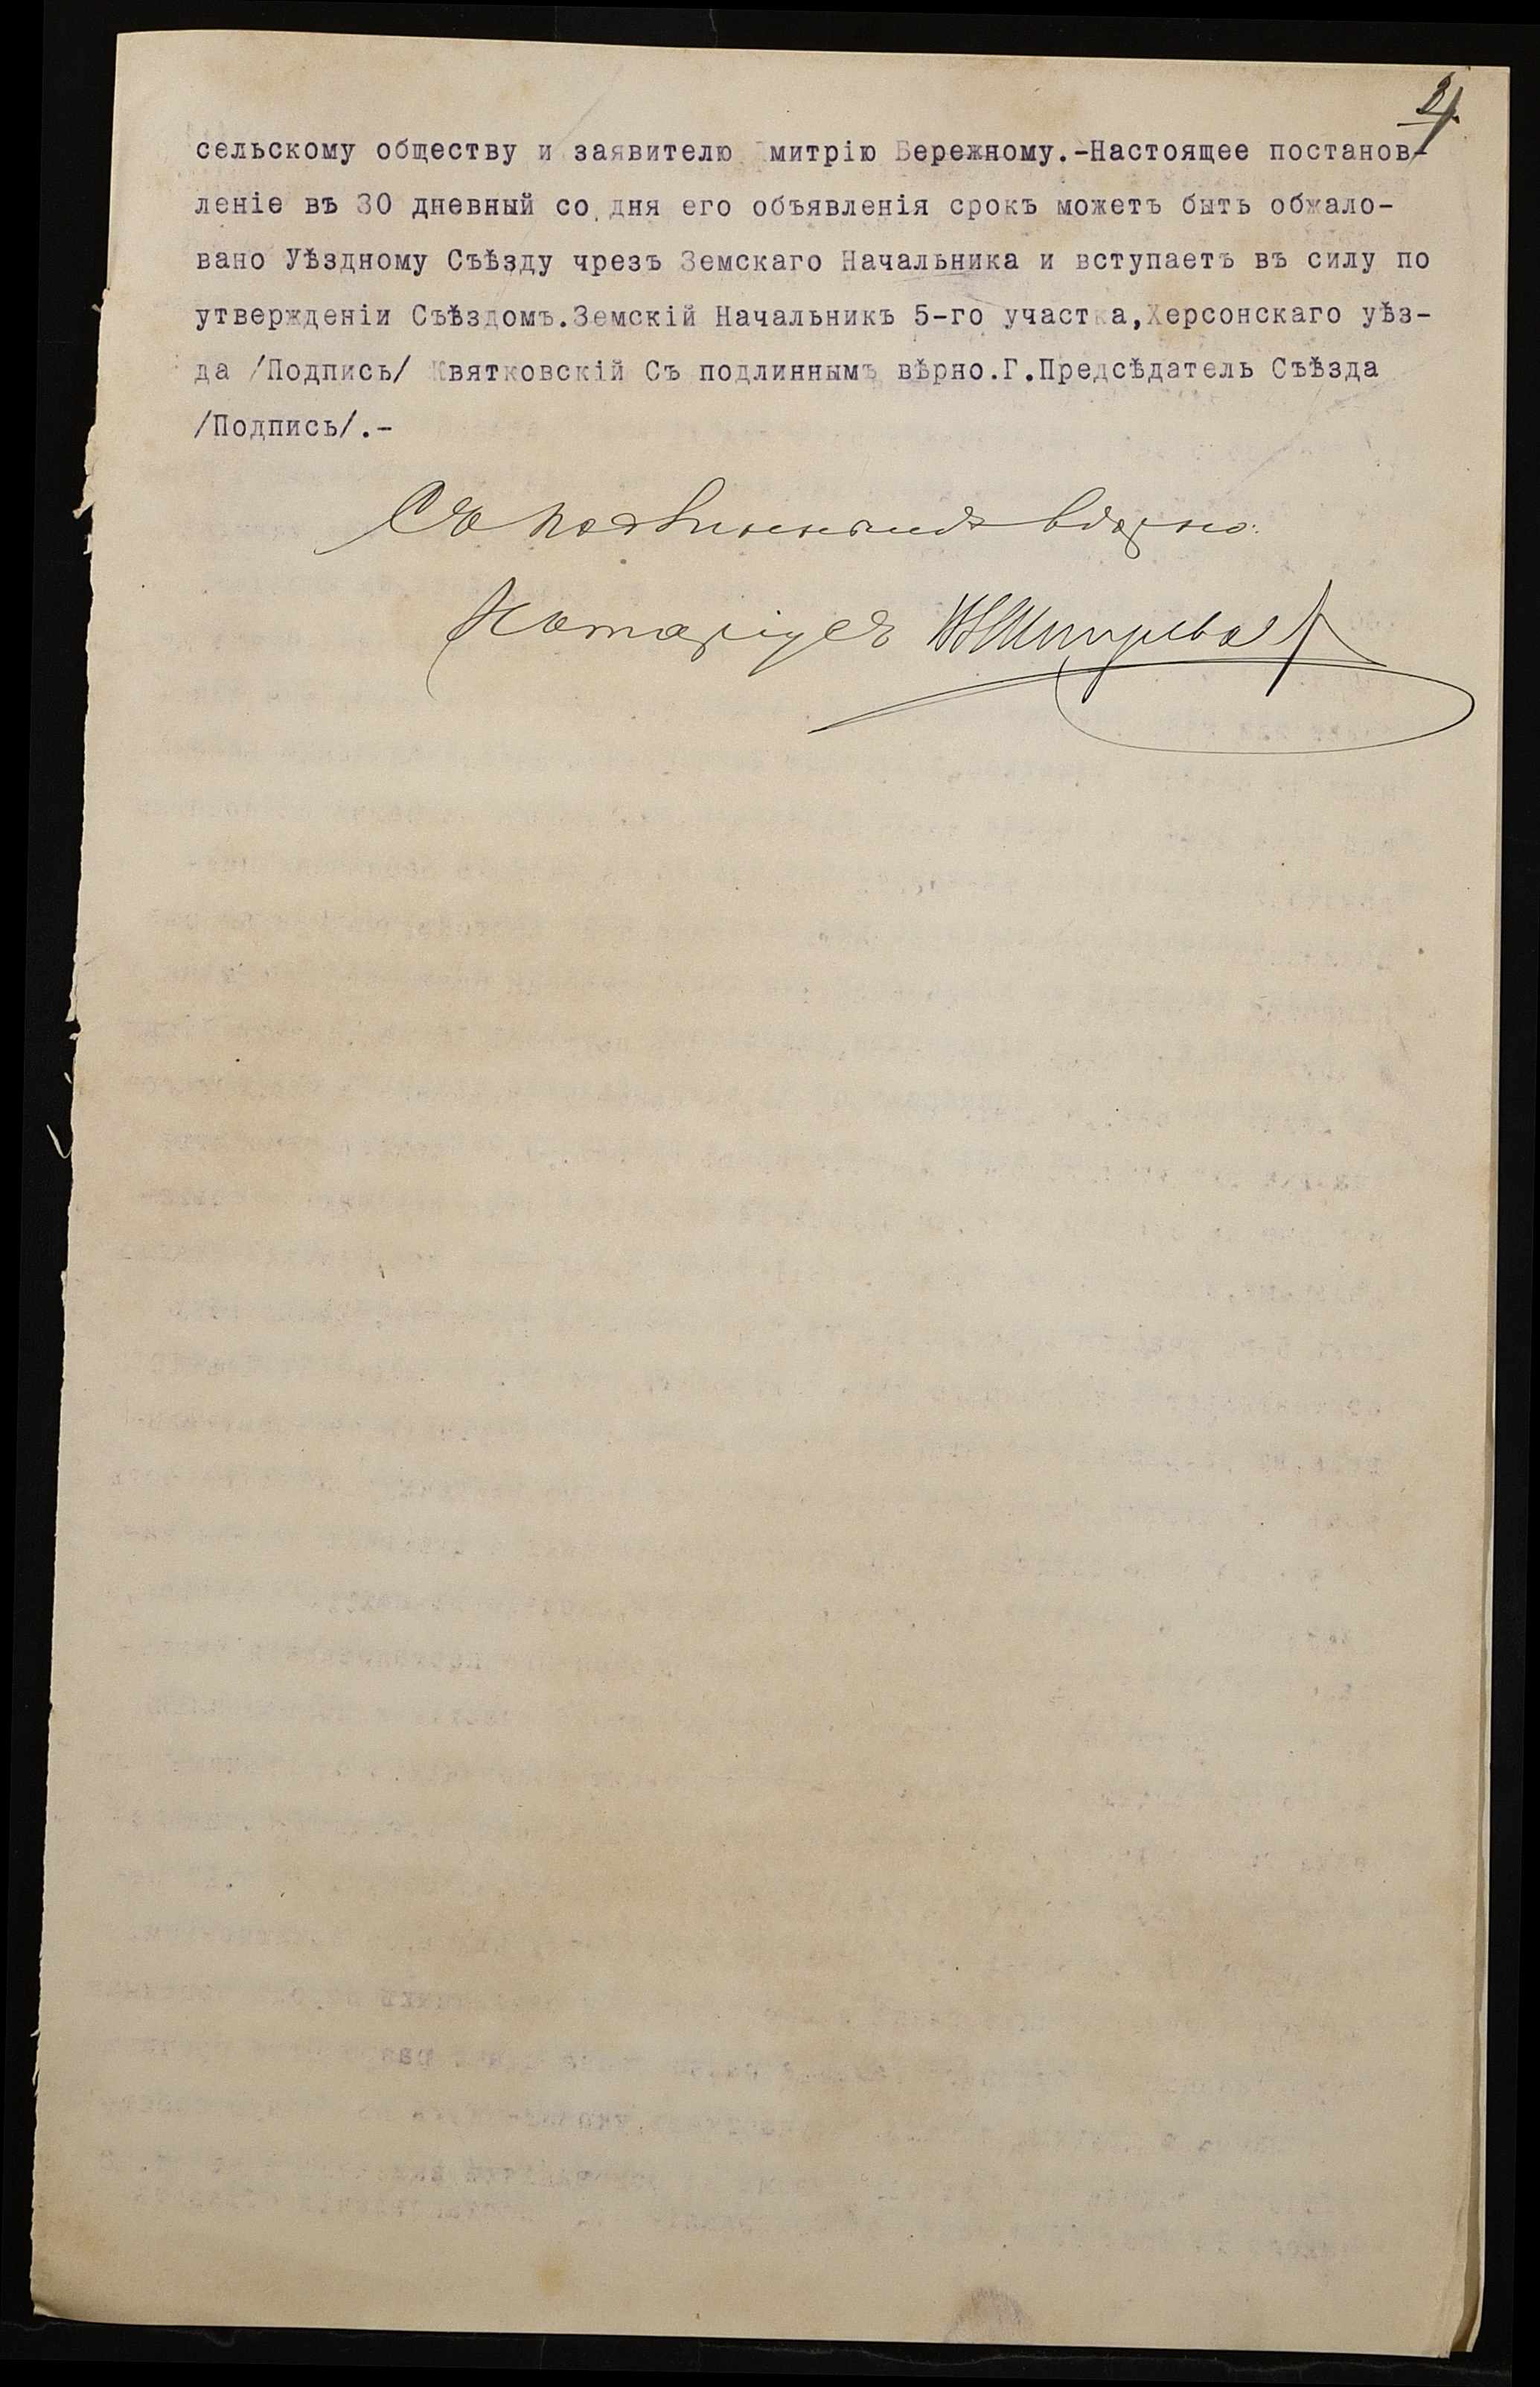 сельскому обществу и заявителю Дмитрію Бережному.-Настоящее постанов-
леніе въ 30 дневный со дня его объявленія срокъ можетъ быть обжало-
вано Уѣздному Съѣзду чрезъ Земскаго Начальника и вступаетъ въ силу по
утвержденіи Съѣздомъ.Земскій Начальникъ 5-го участка,Херсонскаго уѣз-
да /Подпись/ Квятковскій Съ подлиннымъ вѣрно.Г.Предсѣдатель Съѣзда
/Подпись/.-
Съ подлиннымъ вѣрно:
Нотаріусъ